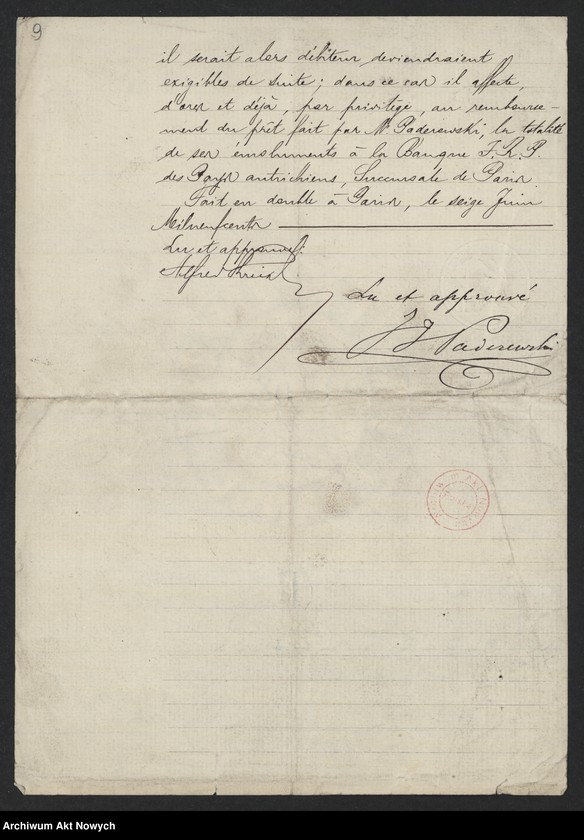 9
il serait alors débiteur deviendraient
exigibles de suite; dans ce cas il affecte,
d'ores et déjà, par privilège, au rembourse-
ment du prêt fait par Mr Paderewski, la totalité
de ses émoluments à la Banque I. R. P.
des Pays autrichiens, Succursale de Paris.
Fait en double à Paris, le seize Juin
Mil neuf cents
Lu et approuvé.
Alfred
Lu et approuvé
I J Paderewski
Archiwum Akt Nowych